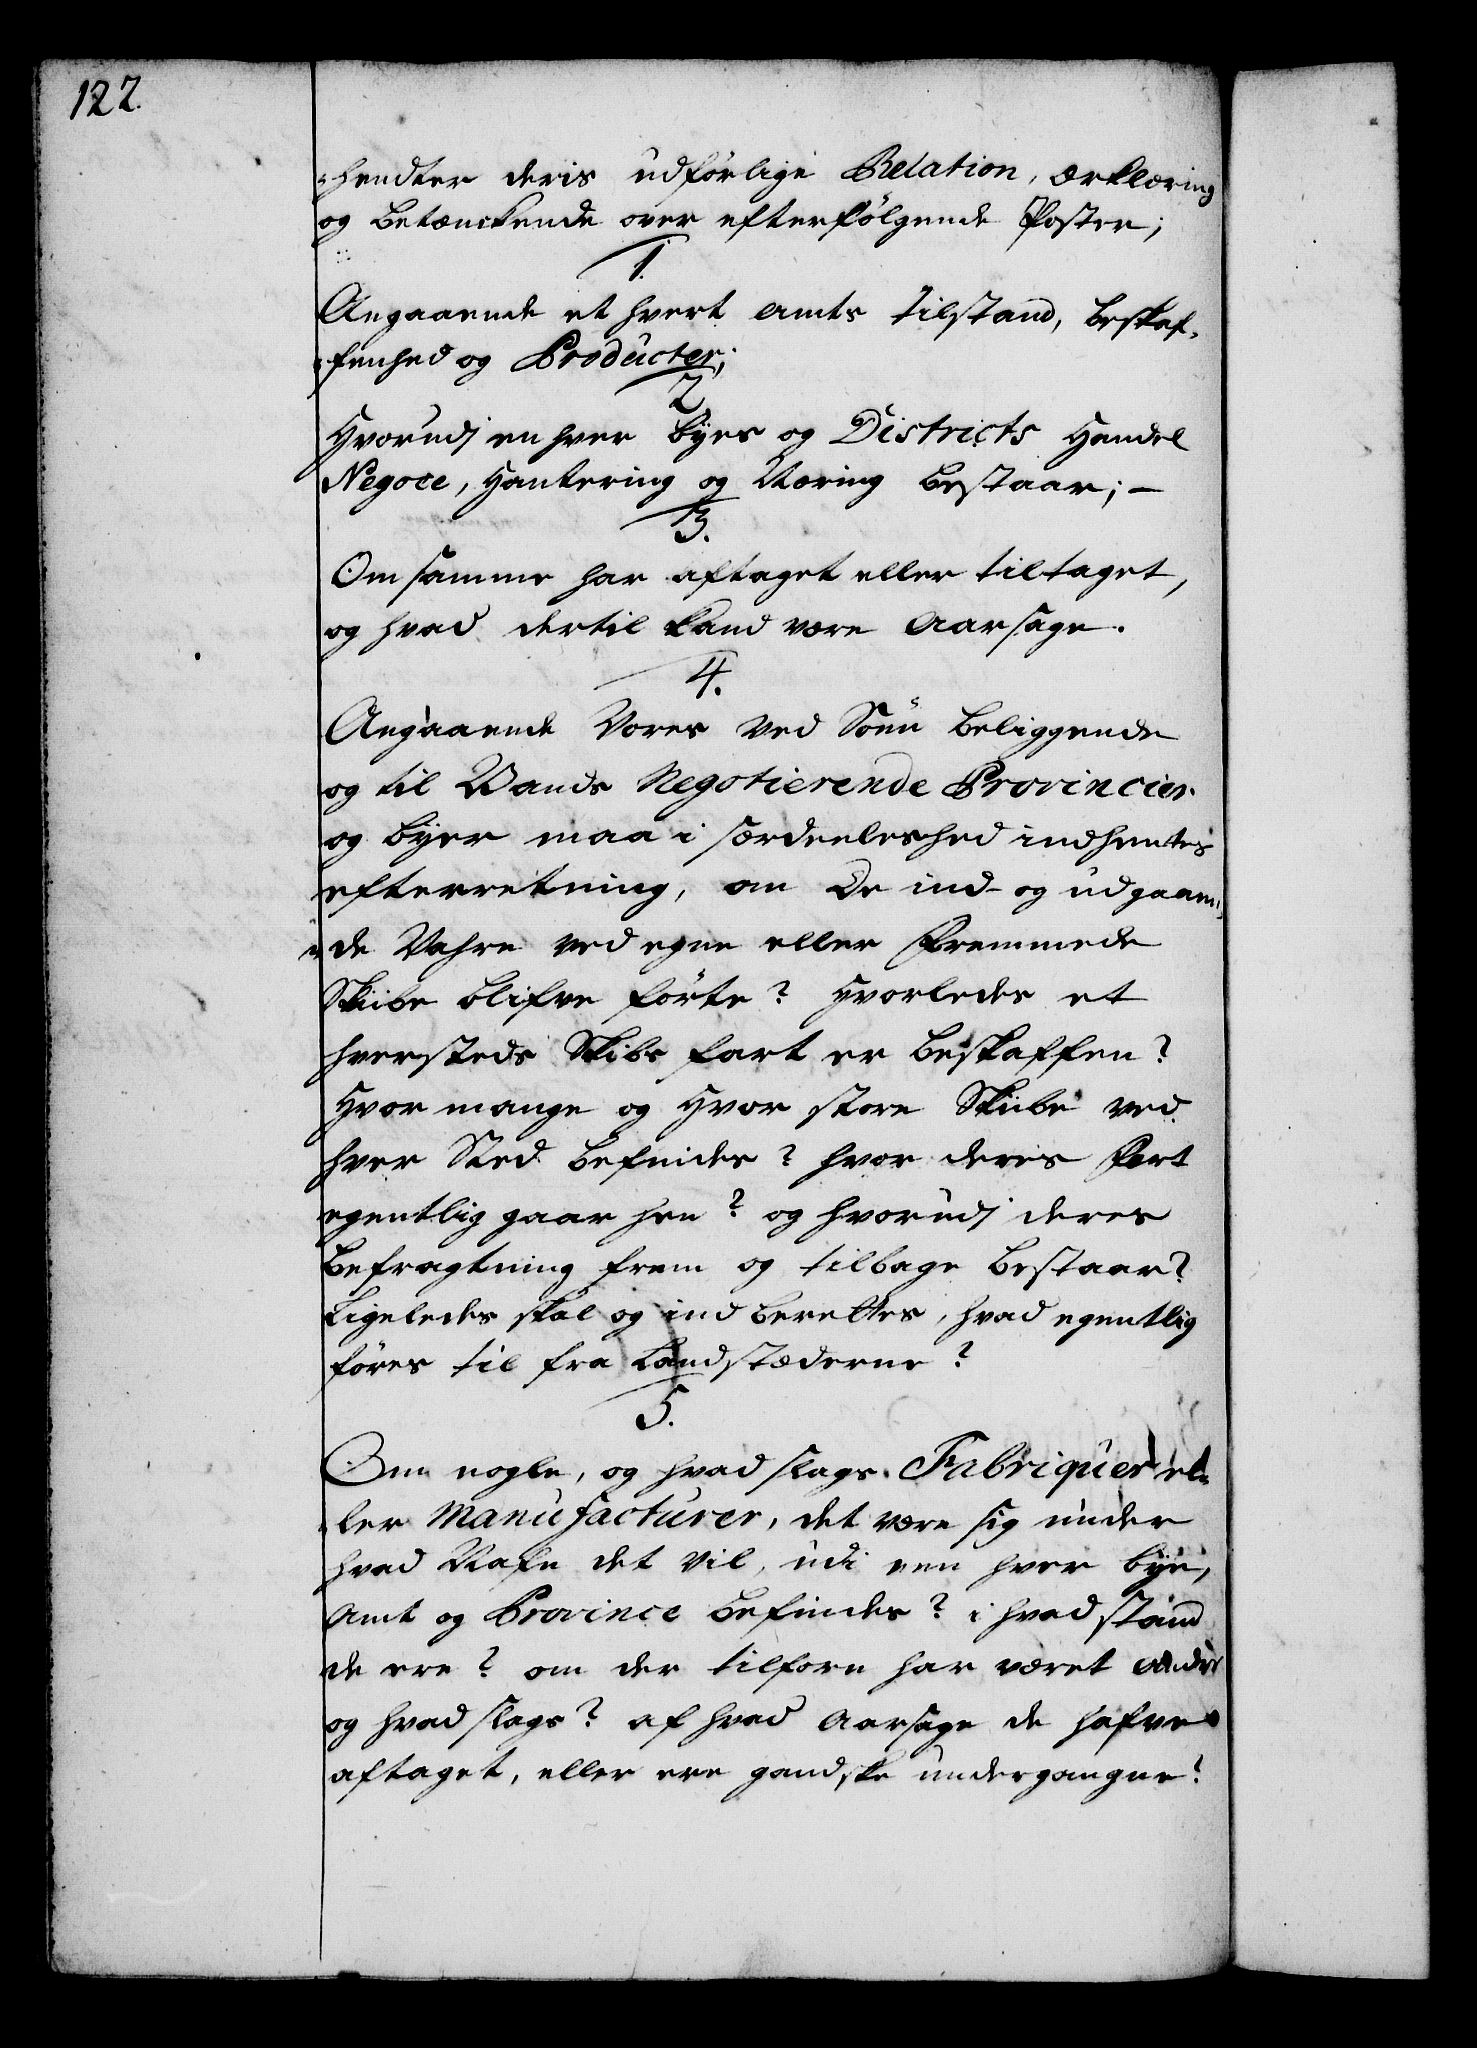 122.
hendter deris udførlige Relation, ærklæring
og betænckende over efterfølgende Poster;
1.
Angaaende et hvert Amts tilstand, beskaf-
fenhed og Producter;
2
Hvorudj en hver byes og Districts Handel
Negoce, Hantering og Næring bestaar; –
3.
Om samme har aftaget eller tiltaget,
og hvad dertil kand være Aarsage.
4.
Angaaende Vores ved Söen beliggende
og til Vands Negotierende Provincier
og byer maa i særdeeleshed indhentes
efterretning, om De ind- og udgaaen-
de Vahre ved egne eller fremmede
Skibe blifve förte? Hvorledes et
hversteds Skibs fart er beskaffen?
Hvor mange og Hvor store Skibe ved
hver Sted befindes? hvor deres Fart
egentlig gaar hen? og hvorudj deres
befragtning frem og tilbage bestaar?
Ligeledes skal og indberettes, hvad egentlig
föres til fra Landstæderne?
5.
Om nogle, og hvad slags Fabriquer el-
ler Manufacturer, det være sig under
hvad Nafn det vil, udi een hver bye,
Amt og Province befindes? i hvad stand
de ere? om der tilforn har været andre
og hvad slags? af hvad Aarsage de hafve
aftaget, eller ere gandske undergangne?